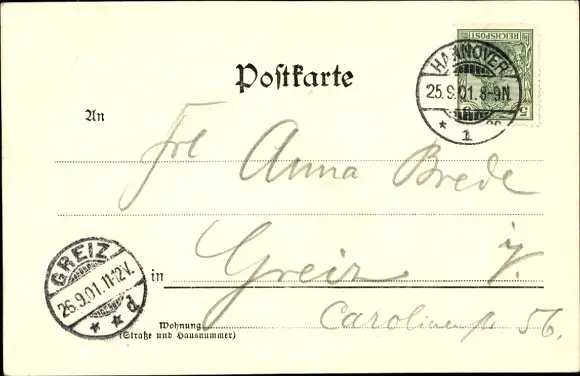 REICHSPOST
5
HANNOVER
25.9.01.8-9N
* 1
Postkarte
An
Frl Anna Brede
in Greiz i/V.
Carolinenstr 56.
Wohnung
(Straße und Hausnummer)
GREIZ
26.9.01.11-12V.
* * d